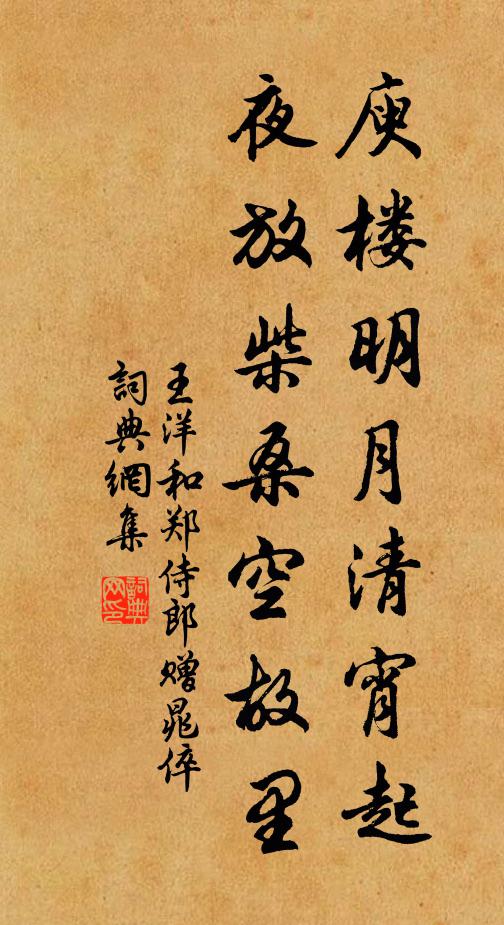 庾楼明月清宵起
夜放柴桑空故里
王洋和郑侍郎赠晁倅
詞典網集
詞典網印